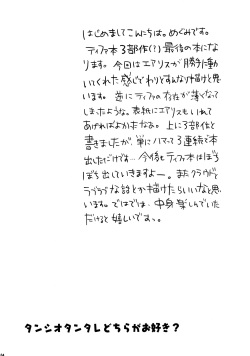 はじめましてこんにちは。めぐみです。
ティファ本3部作(!?)最後の本にな
ります。今回はエアリスが勝手に動
いてくれた感じでわりとすんなり描けたと思
います。逆にティファの存在が薄くなって
しまったような。表紙にエアリスもいれて
あげればよかったなぁ。上に3部作と
書きましたが、単にハマって3連続で本
出しただけです…今後もティファ本はぼち
ぼち出していきますよー。またクラウドで
ラブラブな話とか描けたらいいなと思
います。ではでは、中身楽しんでいた
だけると嬉しいですっ。
タンシオタンタレどちらがお好き？